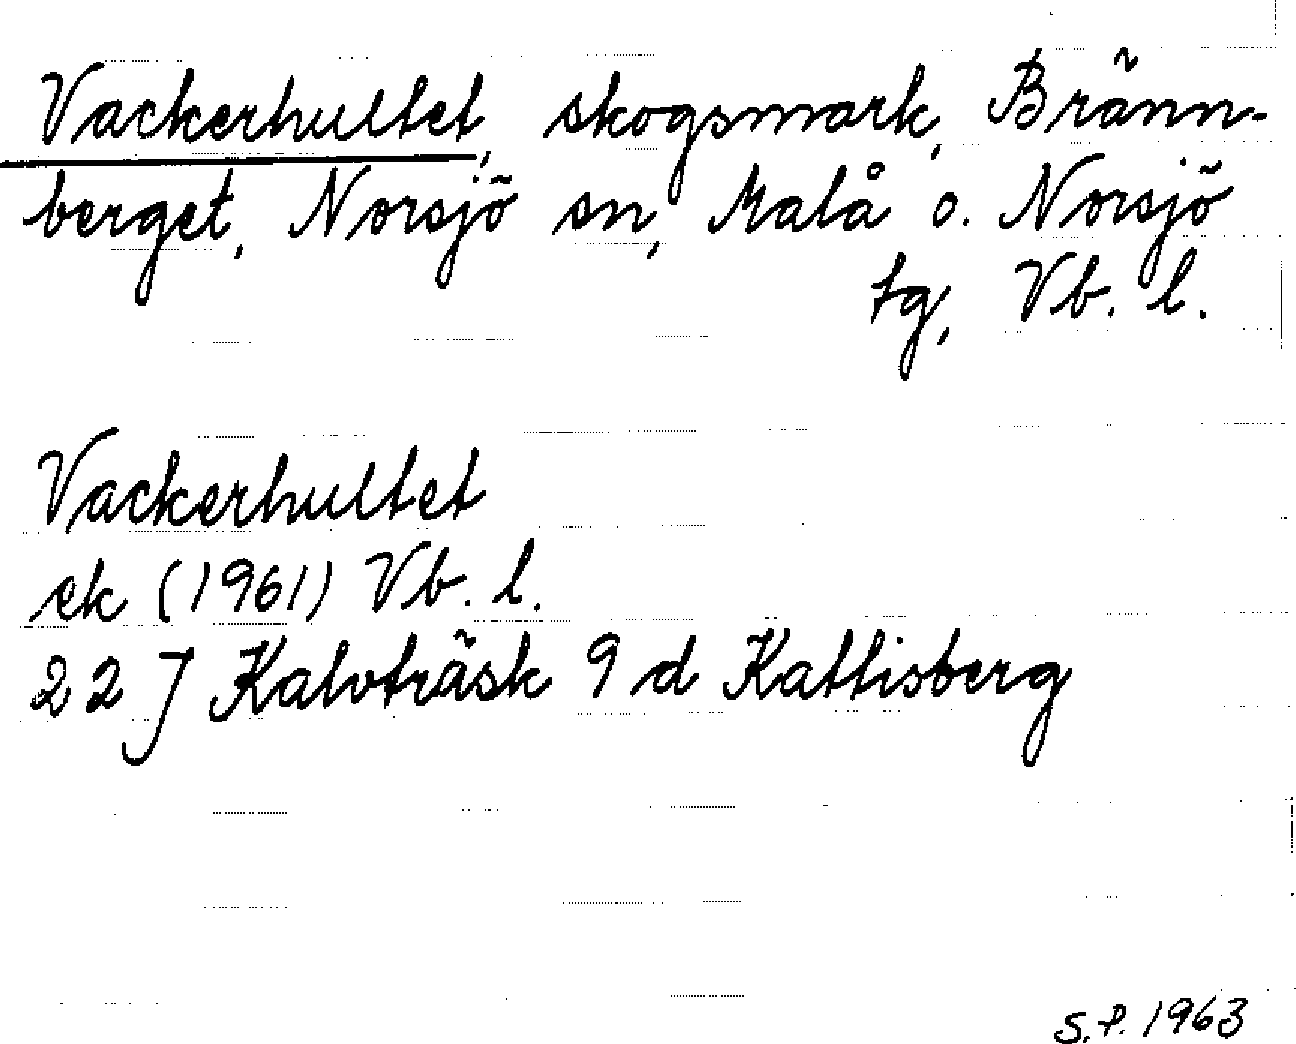 Vackerhultet, skogsmark, Bränn-
berget, Norsjö sn, Malå o. Norsjö
tg, Vb. l.
Vackerhultet
ek (1961) Vb. l.
22 J Kalvträsk 9 d Kattisberg
S.P. 1963